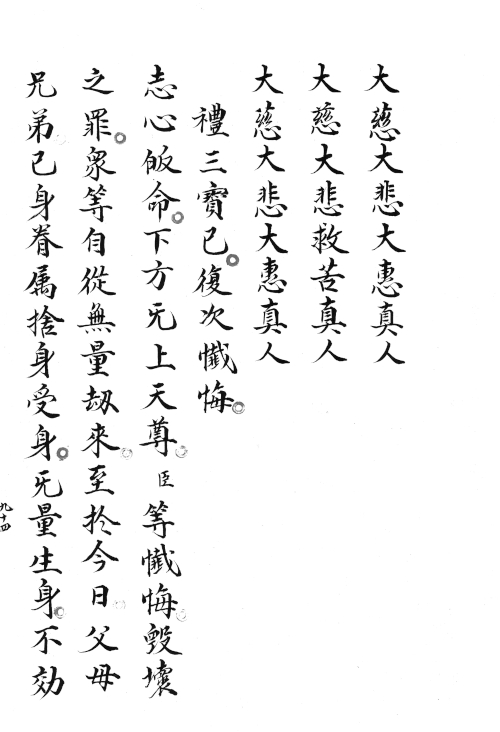 大慈大悲大惠真人
大慈大悲救苦真人
大慈大悲大惠真人
禮三寶已復次懺悔
志心皈命下方旡上天尊臣等懺悔毀壞
之罪衆等自從無量劫來至於今日父母
兄弟己身眷属捨身受身旡量生身不効
九十四